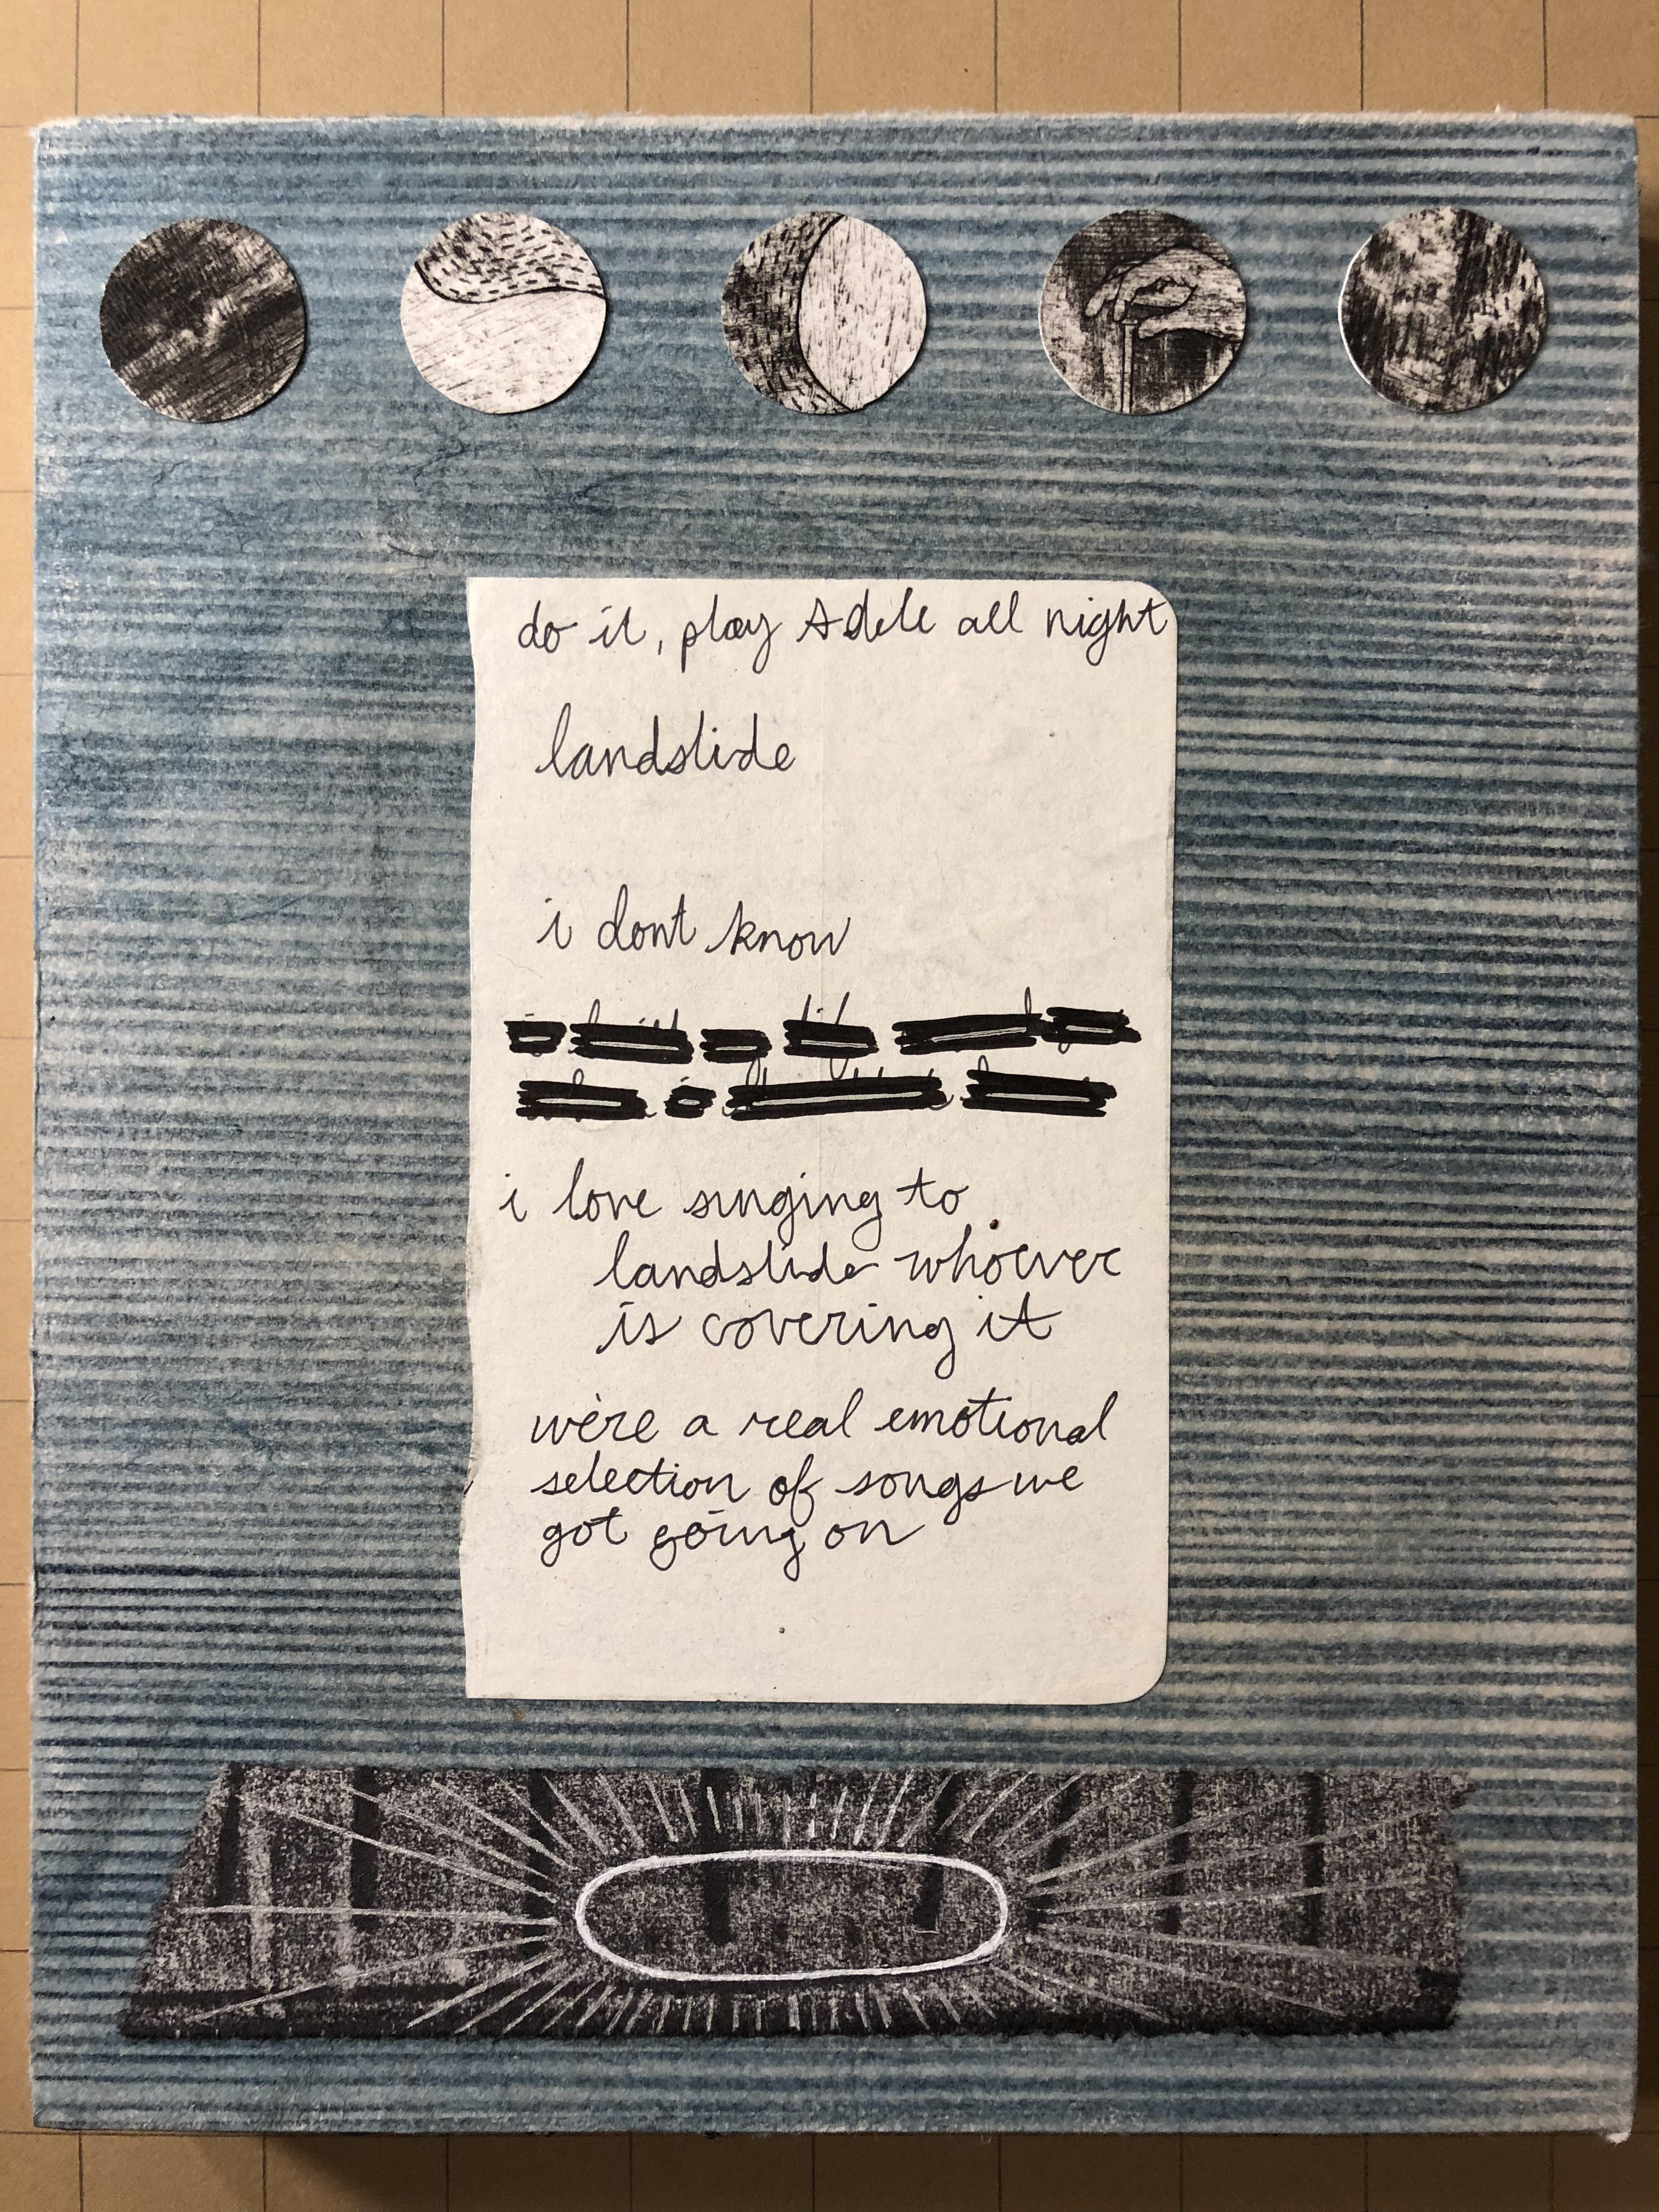 do it, play Adele all night
landslide
i dont know
i love singing to
landslide whoever
is covering it
we're a real emotional
selection of songs we
got going on